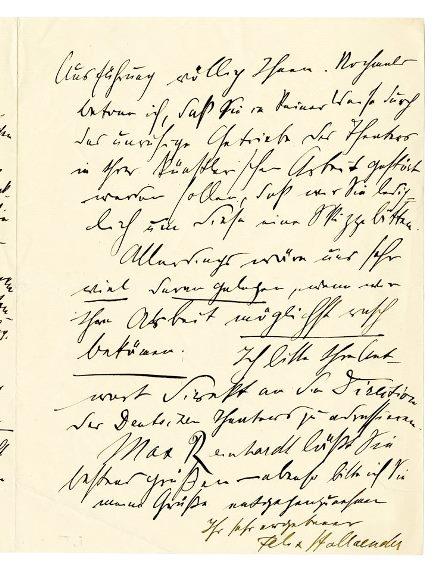 Ausführung völlig Ihnen. Nochmals
betone ich, daß Sie in keiner Weise durch
das unruhige Getriebe des Theaters
in Ihrer künstlerischen Arbeit gestört
werden sollen, daß wir Sie ledig
lich um diese eine Skizze bitten.
Allerdings wäre uns sehr
viel daran gelegen, wenn wir
Ihre Arbeit möglichst rasch
bekämen. Ich bitte Ihre Ant
wort direkt an die Direktion
des Deutschen Theaters zu adressieren.
Max Reinhardt läßt Sie
bestens grüßen – ebenso bitte ich Sie
meine Grüße entgegenzunehmen
Ihr sehr ergebener
Felix Hollaender